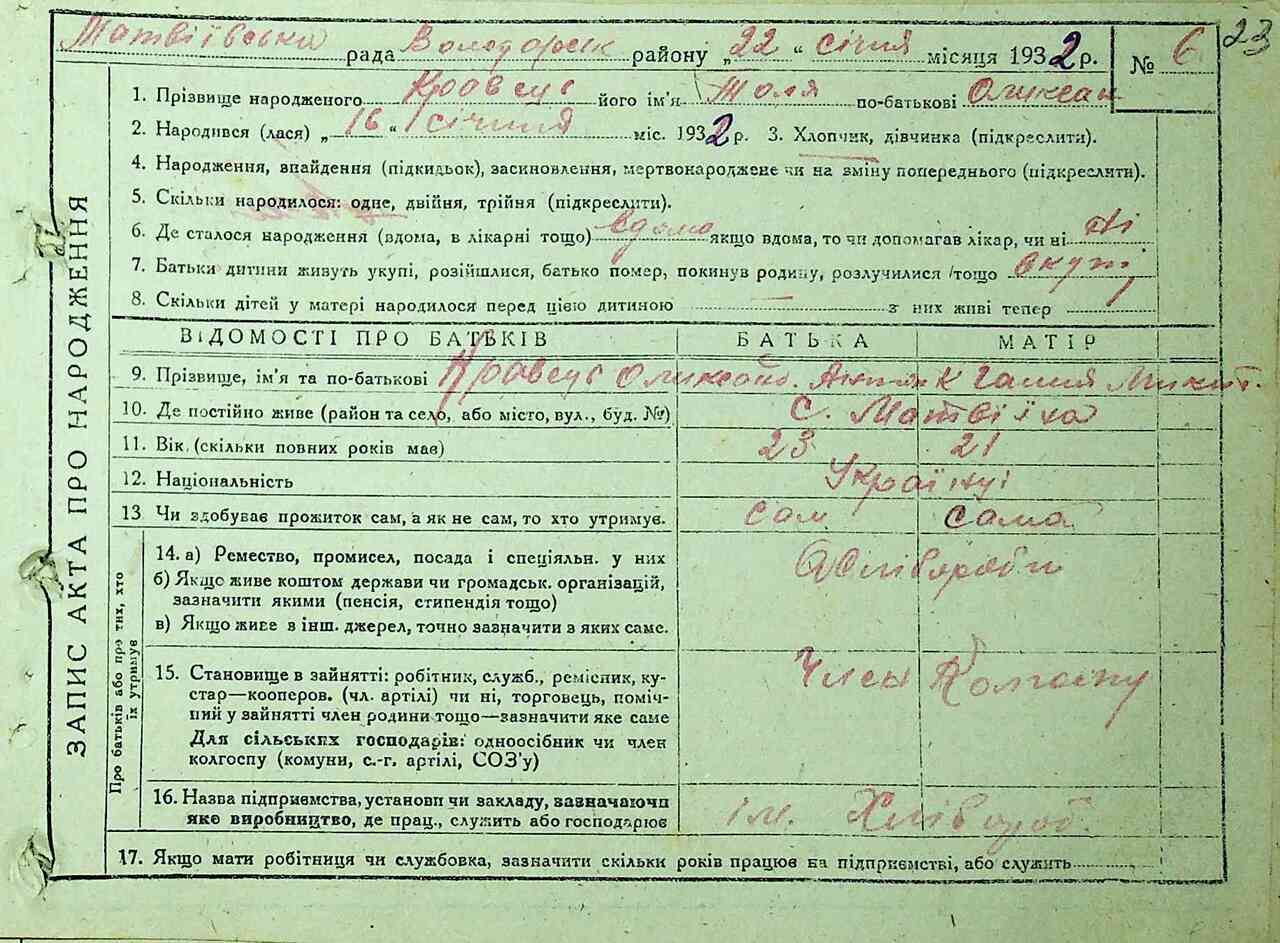 23
Матвіївська рада Володарськ району „22" січня місяця 1932 р. № 6
ЗАПИС АКТА ПРО НАРОДЖЕННЯ
1. Прізвище народженого Кравець його ім'я Толя по-батькові Оликсан
2. Народився (лася) „16" січня міс. 1932 р. 3. Хлопчик, дівчинка (підкреслити).
4. Народження, знайдення (підкидьок), засиновлення, мертвонароджене чи на зміну попереднього (підкреслити).
5. Скільки народилося: одне, двійня, трійня (підкреслити).
6. Де сталося народження (вдома, в лікарні тощо) вдома якщо вдома, то чи допомагав лікар, чи ні ні
7. Батьки дитини живуть укупі, розійшлися, батько помер, покинув родину, розлучилися тощо вкупі
8. Скільки дітей у матері народилося перед цією дитиною — з них живі тепер
ВІДОМОСТІ ПРО БАТЬКІВ БАТЬКА МАТІР
9. Прізвище, ім'я та по-батькові Кравець Антон Ганния Микит.
10. Де постійно живе (район та село, або місто, вул., буд. №) с. Матвіїха
11. Вік (скільки повних років має) 23 21
12. Національність Українці
13 Чи здобуває прожиток сам, а як не сам, то хто утримує. сам сама
Про батьків або про тих, хто їх утримує
14. а) Ремество, промисел, посада і спеціяльн. у них
б) Якщо живе коштом держави чи громадськ. організацій,
зазначити якими (пенсія, стипендія тощо)
в) Якщо живе з інш. джерел, точно зазначити з яких саме.
15. Становище в зайнятті: робітник, служб., ремісник, ку-
стар—кооперов. (чл. артілі) чи ні, торговець, поміч-
ний у зайнятті член родини тощо—зазначити яке саме
Для сільських господарів: одноосібник чи член
колгоспу (комуни, с.-г. артілі, СОЗ'у)
Члены Колгоспу
16. Назва підприємства, установи чи закладу, зазначаючи
яке виробництво, де прац., служить або господарює
ім. Хлібороб.
17. Якщо мати робітниця чи службовка, зазначити скільки років працює на підприємстві, або служить